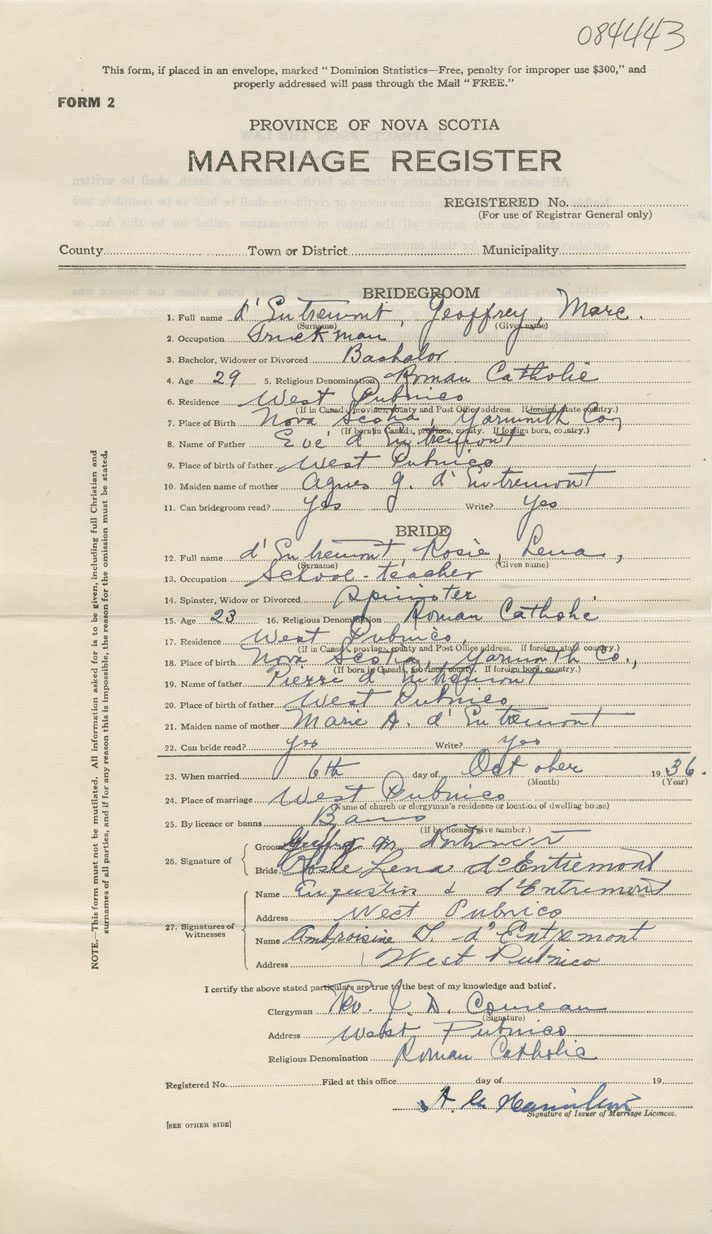 084443
This form, if placed in an envelope, marked "Dominion Statistics—Free, penalty for improper use $300," and
properly addressed will pass through the Mail "FREE."
FORM 2
PROVINCE OF NOVA SCOTIA
MARRIAGE REGISTER
REGISTERED No.
(For use of Registrar General only)
County Town or District Municipality
BRIDEGROOM
1. Full name d'Entremont, Geoffrey, Marc.
(Surname) (Given name)
2. Occupation Truckman
3. Bachelor, Widower or Divorced Bachalor
4. Age 29 5. Religious Denomination Roman Catholic
6. Residence West Pubnico
(If in Canada, province, county and Post Office address. If foreign, state country.)
7. Place of Birth Nova Scotia, Yarmouth Co,
(If born in Canada, province, county. If foreign born, country.)
8. Name of Father d'Entremont
9. Place of birth of father West Pubnico
10. Maiden name of mother Agnes J. d'Entremont
11. Can bridegroom read? Yes Write? Yes
BRIDE
12. Full name d'Entremont, Rosie, Lena,
(Surname) (Given name)
13. Occupation School-teacher
14. Spinster, Widow or Divorced Spinster
15. Age 23 16. Religious Denomination Roman Catholic
17. Residence West Pubnico,
(If in Canada, province, county and Post Office address. If foreign, state country.)
18. Place of birth Nova Scotia, Yarmouth Co.,
(If born in Canada, province, county. If foreign born, country.)
19. Name of father Pierre d'Entremont
20. Place of birth of father West Pubnico
21. Maiden name of mother Marie A. d'Entremont
22. Can bride read? yes Write? yes
23. When married 6th day of October 1936.
(Month) (Year)
24. Place of marriage West Pubnico
(Name of church or clergyman's residence or location of dwelling house)
25. By licence or banns Bans
(If by licence, give number.)
26. Signature of Groom
Bride Rosie Lena d'Entremont
27. Signatures of Witnesses
Name d'Entremont
Address West Pubnico
Name Ambroisine d'Entremont
Address West Pubnico
I certify the above stated particulars are true to the best of my knowledge and belief.
Clergyman Rev. J. D. Comeau
(Signature)
Address West Pubnico
Religious Denomination Roman Catholic
Registered No. Filed at this office day of 19
Signature of Issuer of Marriage Licences.
[SEE OTHER SIDE]
NOTE.—This form must not be mutilated. All information asked for is to be given, including full Christian and
surnames of all parties, and if for any reason this is impossible, the reason for the omission must be stated.